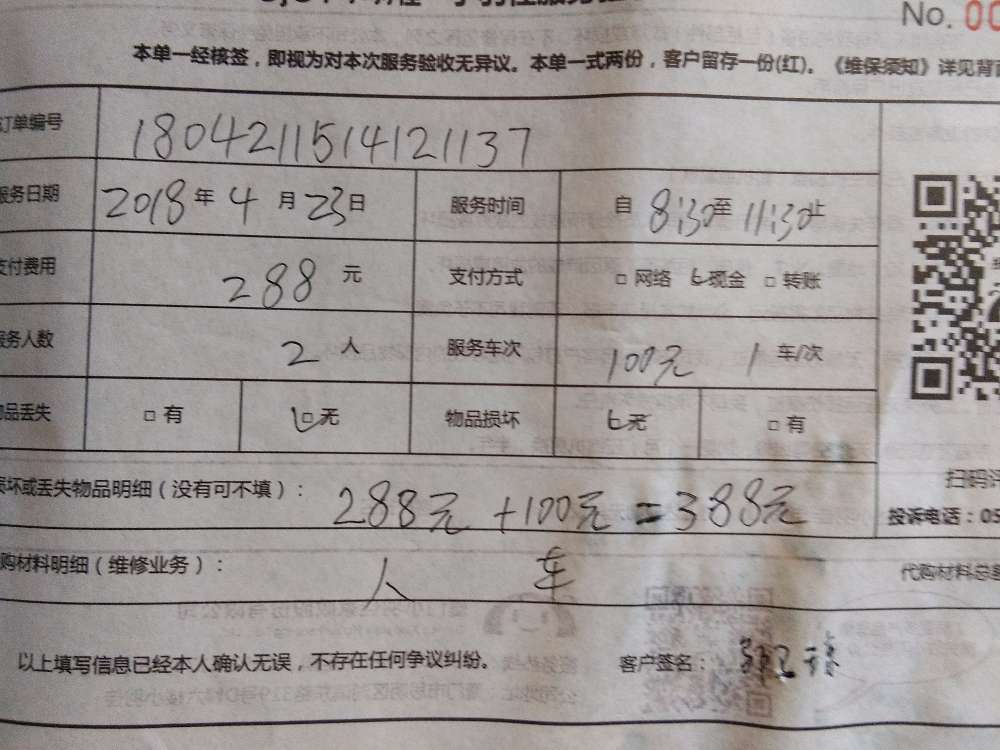 No. 00
本单一经核签，即视为对本次服务验收无异议。本单一式两份，客户留存一份(红)。《维保须知》详见背面
订单编号 1804211514121137
服务日期 2018年4月23日 服务时间 自8:30至11:30止
支付费用 288元 支付方式 □网络 现金 □转账
服务人数 2人 服务车次 100元 1车/次
物品丢失 □有 □无 物品损坏 无 □有
损坏或丢失物品明细（没有可不填）： 288元+100元=388元
扫码评
投诉电话：05
代购材料明细（维修业务）： 人 车 代购材料总
以上填写信息已经本人确认无误，不存在任何争议纠纷。 客户签名：